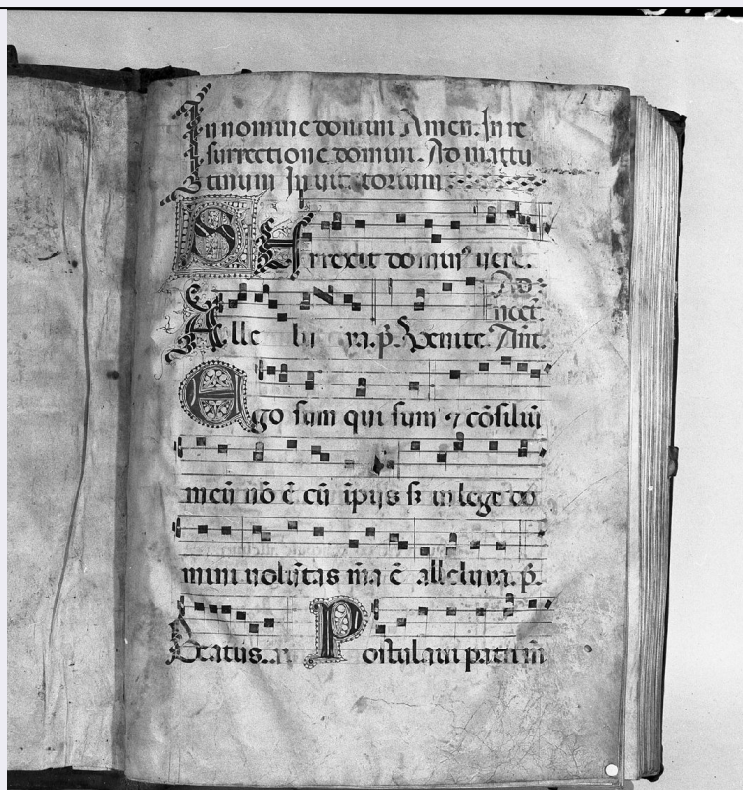 In nomine domini Amen. In re
surrectione domini. Ad mattu
tinum Inuitatorium
SUrrexit domin⁹ uere.
Ad
noct.
Alleluya. p̄. Venite. Ant.
Ego sum qui sum ⁊ cōsiliū
meū nō ē cū īpijs s; in lege do
mini uolūtas m̄a ē alleluya. p̄.
Beatus. Postulaui patrem